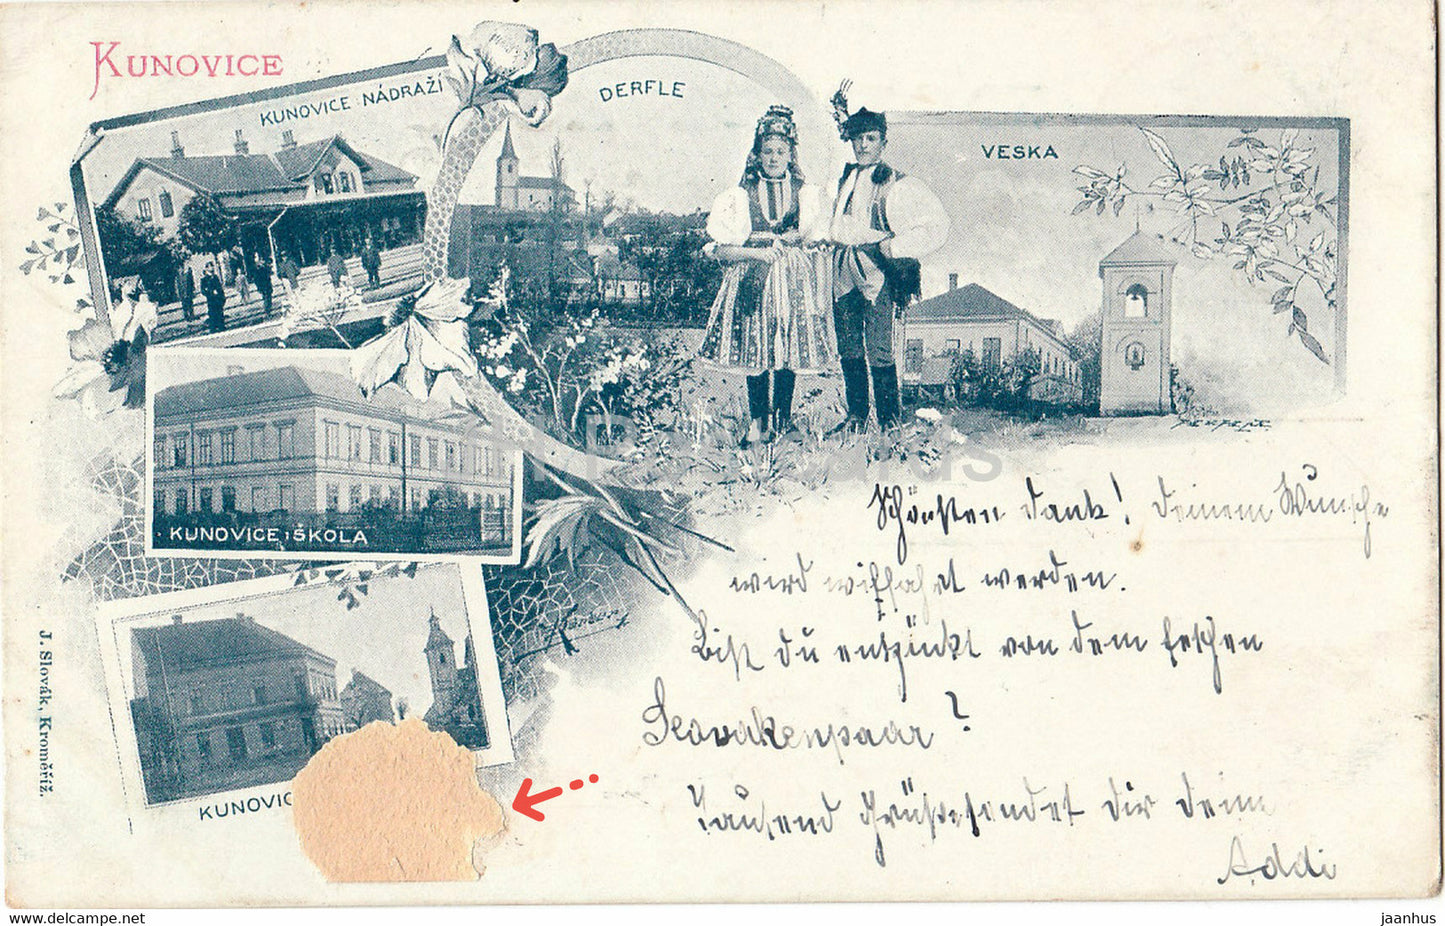 KUNOVICE
KUNOVICE NÁDRAŽÍ
DERFLE
VESKA
KUNOVICE ŠKOLA
KUNOVIC
J. Slovák, Kroměříž.
Postcards
Schönsten Dank! Deinem Wunsche
wird willfahrt werden.
Bist du entzückt von dem feschen
Slovakenpaar?
Tausend Grüße sendet dir dein
Addi
jaanhus